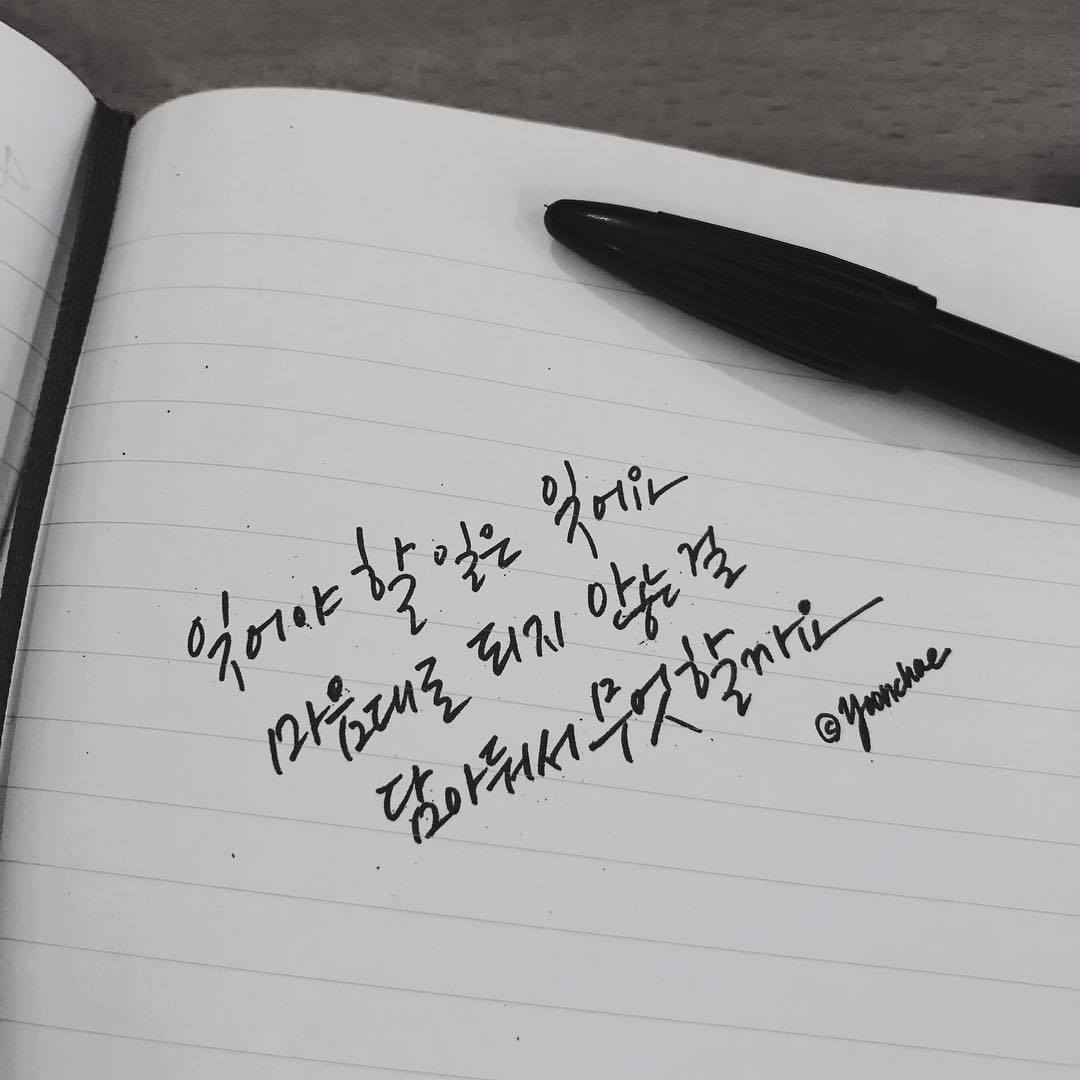 잊어야 할 일은 잊어요
마음대로 되지 않는 걸
담아둬서 무엇할까요
©yoonchae